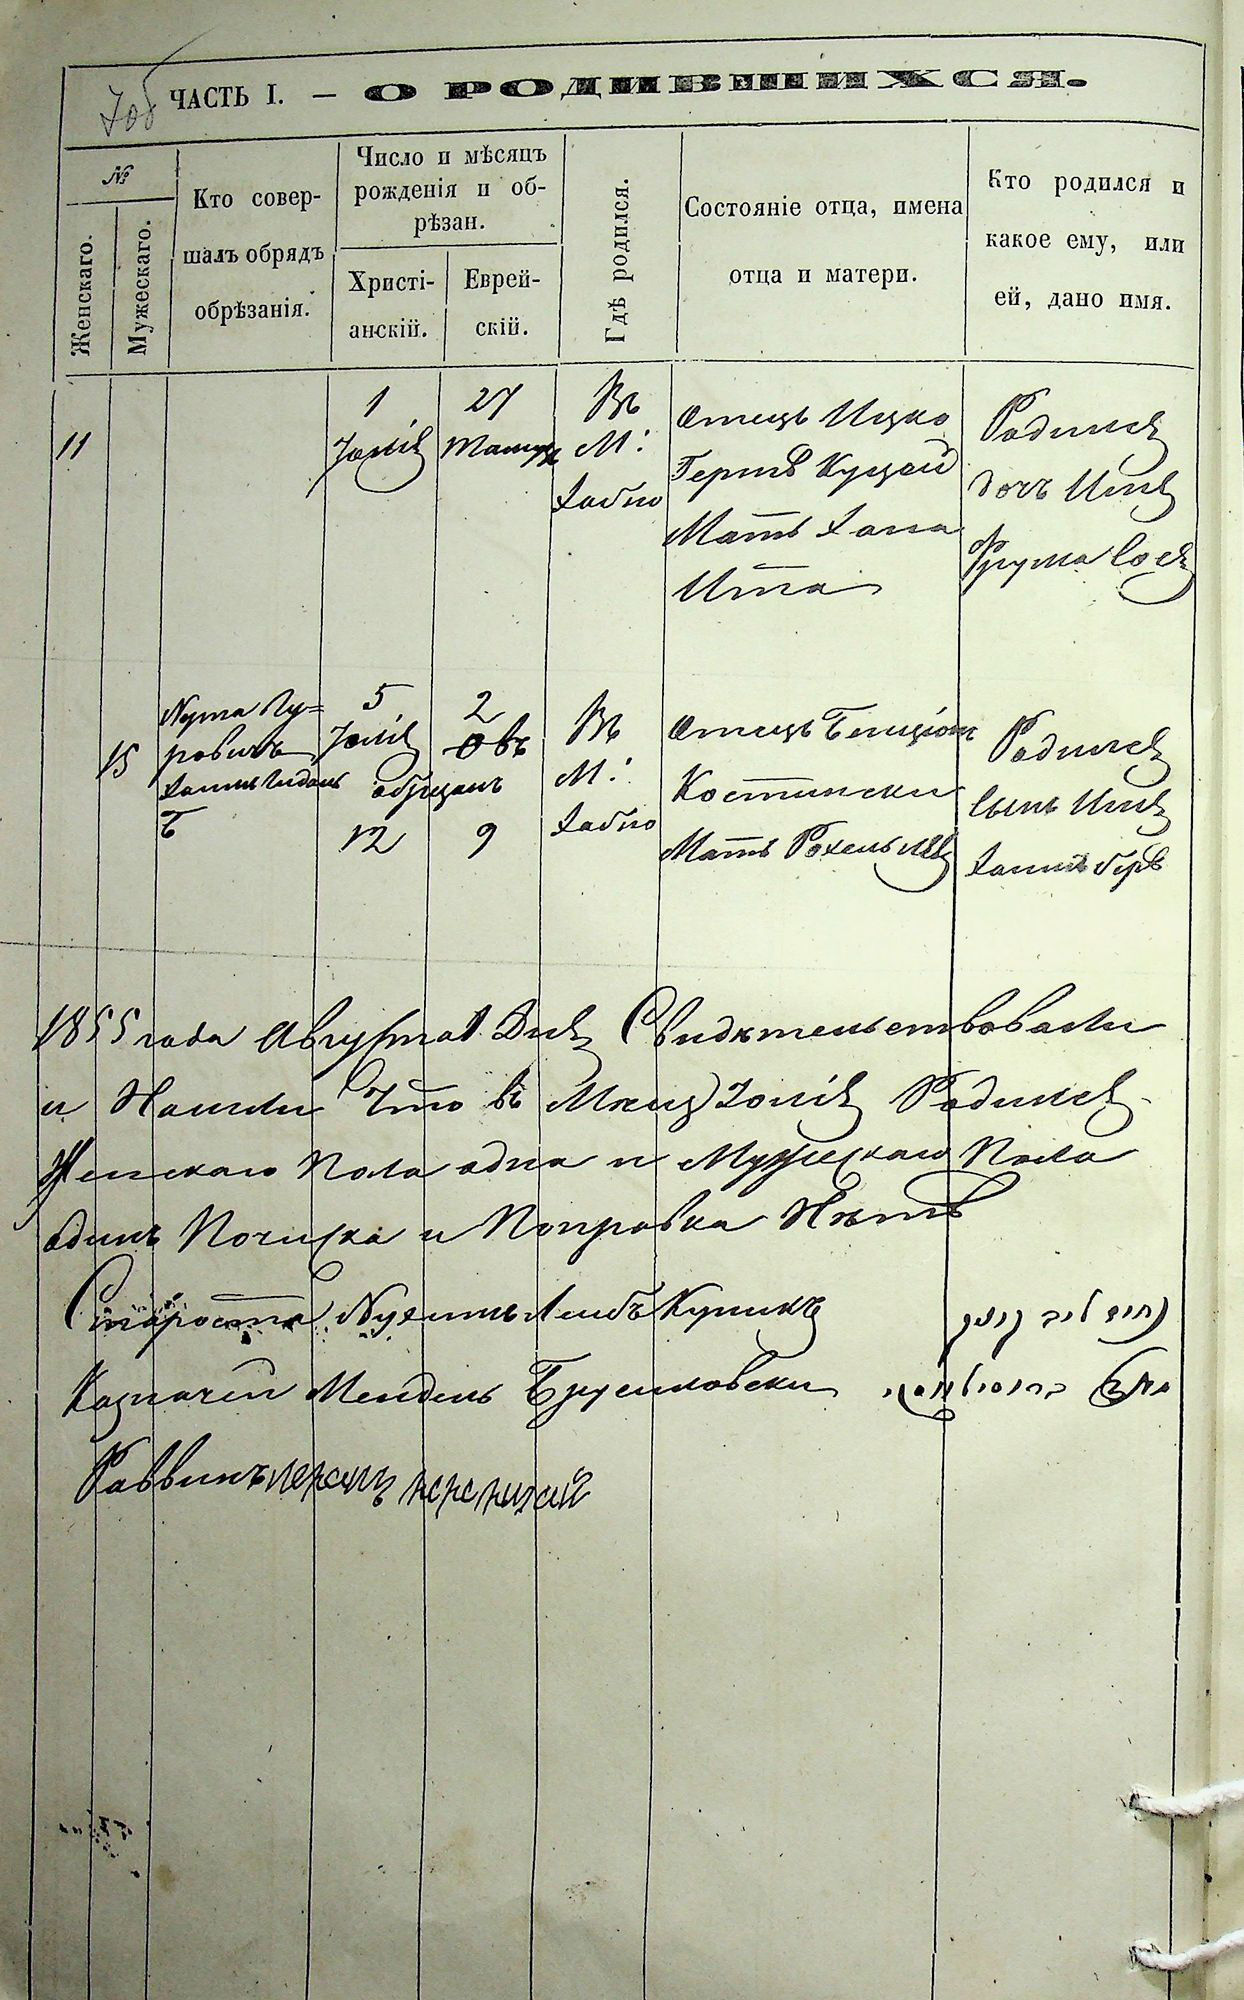 706
ЧАСТЬ I. — О РОДИВШИХСЯ.
№
Женскаго.
Мужескаго.
Кто совер-
шалъ обрядъ
обрѣзанія.
Число и мѣсяцъ
рожденія и об-
рѣзан.
Христі-
анскій.
Еврей-
скій.
Гдѣ родился.
Состояніе отца, имена
отца и матери.
Кто родился и
какое ему, или
ей, дано имя.
11
1
Іюлія
27
Тамуз
Въ
М:
Хабно
Отецъ Ицко
Гершъ Куцай
Мать Хана
Ита
Родился
дочь Имя
Фрума Сося
15
Нута Гу-
ровичъ
5
Іюлія
2
Овъ
обрѣцанъ
12
9
Въ
М:
Хабно
Отецъ Бенціонъ
Костински
Мать Рохель Лея
Родился
Сынъ Имя
Хаимъ беръ
1855 года Августа 1 Дня Свидѣтельствовали
и Нашли Что въ Мѣсяц Іюлія Родился
Женскаго Пола одна и Мужескаго Пола
одинъ Почистка и Поправка Нѣтъ
Староста Нухимъ Лейбъ Куникъ
Казначей Мендель Брусиловски
Раввинъ